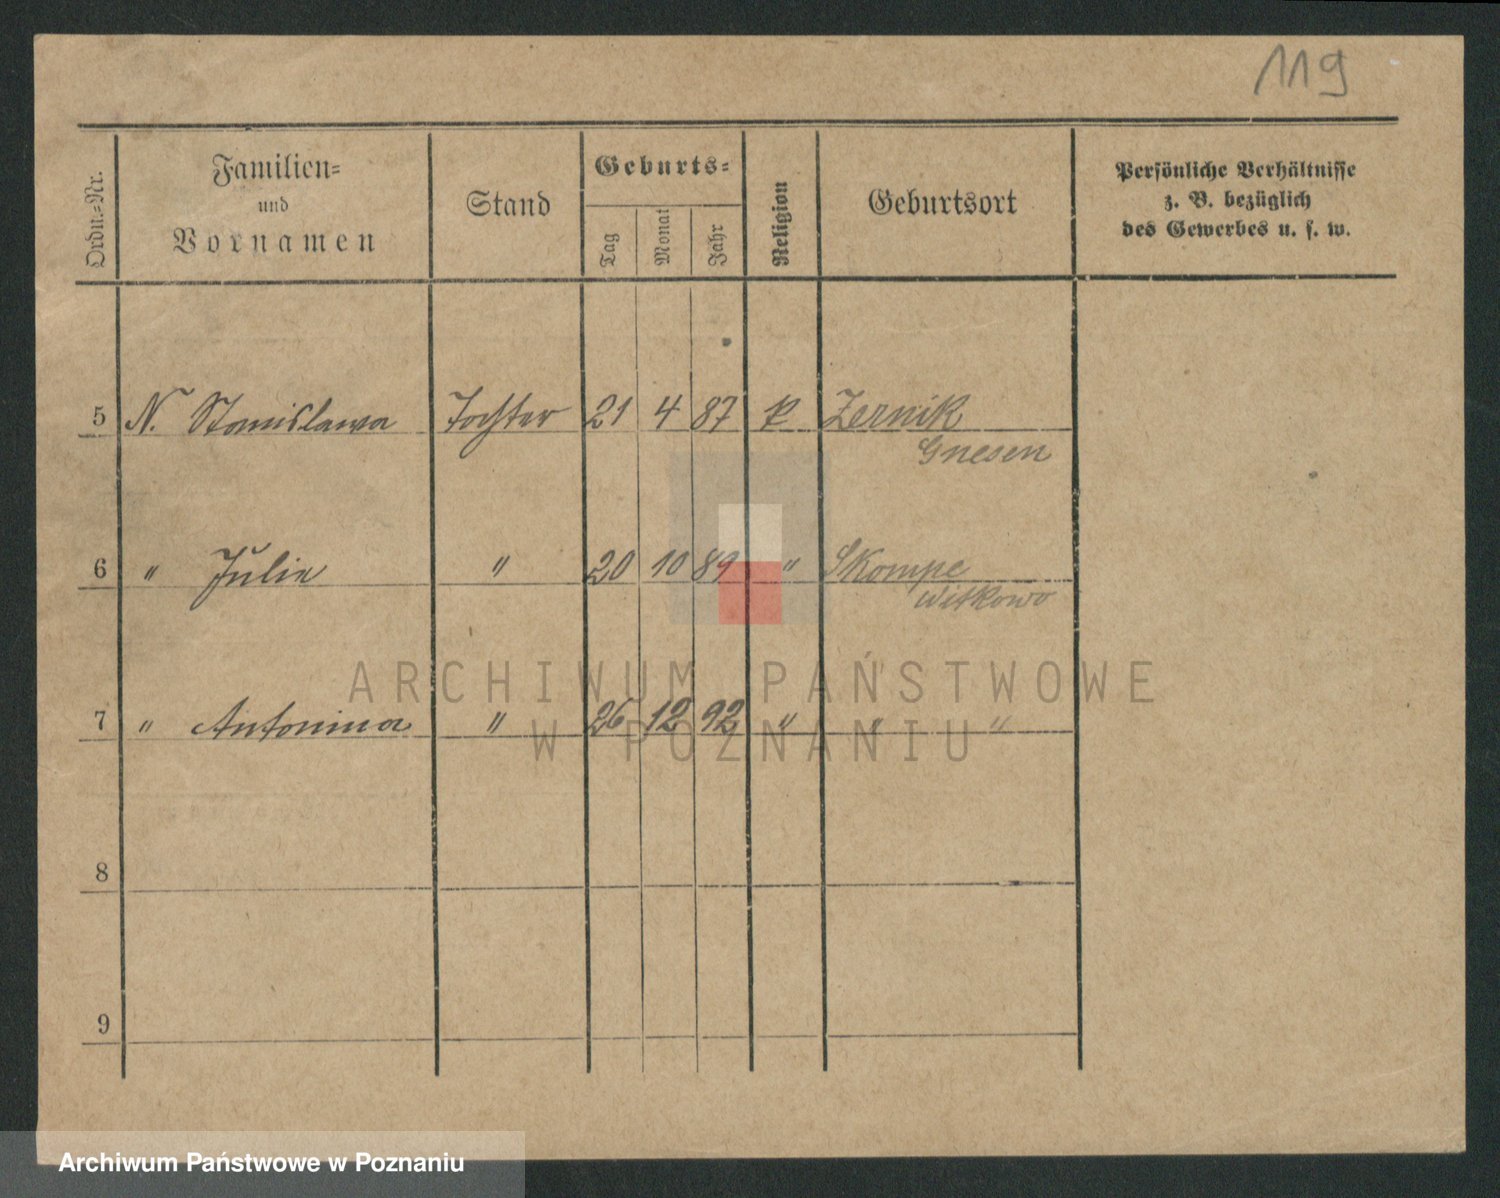 119
Ordn.-Nr.
Familien-
und
Vornamen
Stand
Geburts-
Tag
Monat
Jahr
Religion
Geburtsort
Persönliche Verhältnisse
z. B. bezüglich
des Gewerbes u. s. w.
5 N. Stanislawa Tochter 21 4 87 k Zernik
Gnesen
6 " Julie " 20 10 89 " Skompe
Witkowo
7 " Antonina " 26 12 92 " " "
8
9
ARCHIWUM PAŃSTWOWE
W POZNANIU
Archiwum Państwowe w Poznaniu